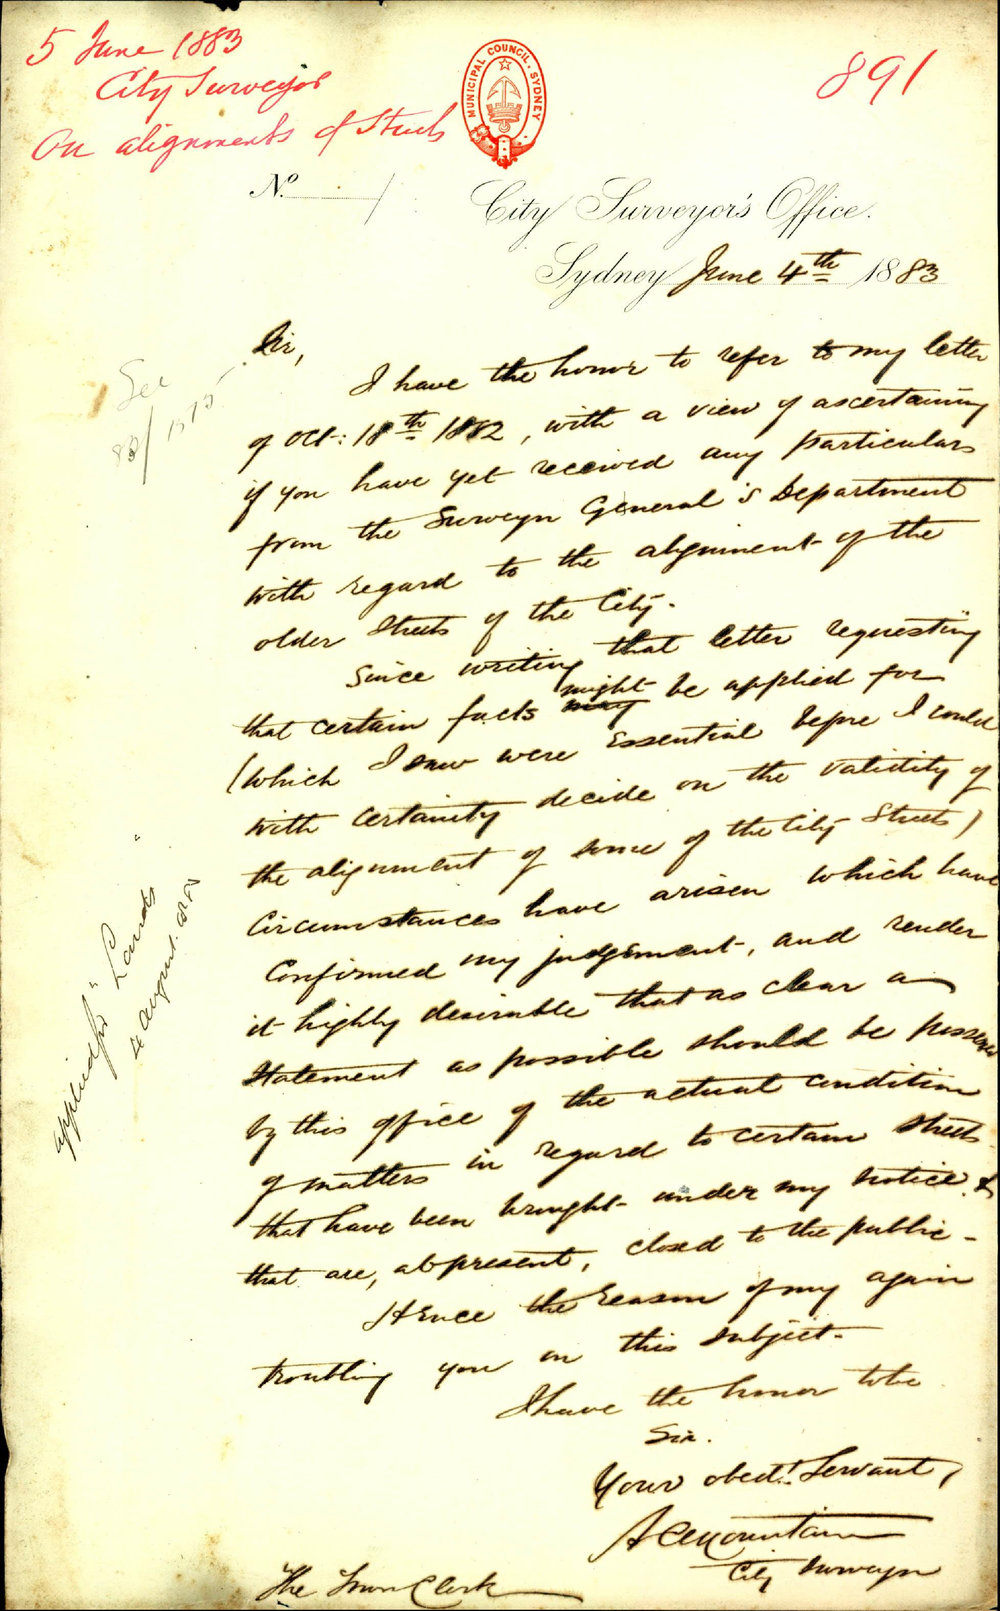 5 June 1883
City Surveyor
On alignments of Streets
891
MUNICIPAL COUNCIL. SYDNEY
No.
City Surveyor's Office.
Sydney June 4th 1883
See
83/1575
Sir,
I have the honor to refer to my letter
of Oct: 18th 1882, with a view of ascertaining
if you have yet received any particulars
from the Surveyor General's Department
with regard to the alignment of the
older Streets of the City.
Since writing that letter requesting
that certain facts may might be applied for
(which I saw were essential before I could
with certainty decide on the validity of
the alignment of some of the City Streets)
Circumstances have arisen which have
Confirmed my judgement, and render
it highly desirable that as clear a
Statement as possible should be possessed
by this office of the actual condition
of matters in regard to certain streets
that have been brought under my notice &
that are, at present, closed to the public -
Hence the reason of my again
troubling you on this subject -
I have the honor to be
Sir.
Your obedt. Servant,
A C Mountain
City Surveyor
The Town Clerk
applied for "Lands"
4 august